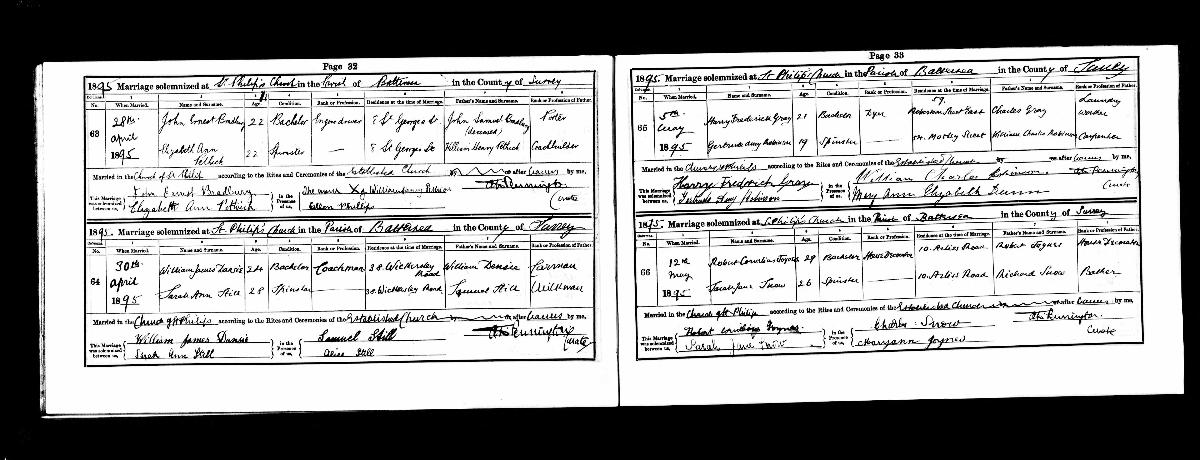 Page 32
1895. Marriage solemnized at St. Philip's Church in the Parish of Battersea in the County of Surrey
No. When Married. Name and Surname. Age Condition. Rank or Profession. Residence at the time of Marriage. Father's Name and Surname. Rank or Profession of Father.
63 28th April 1895 John Ernest Bradbury 22 Bachelor Engine driver St Georges St John Samuel (deceased) Porter
Elizabeth Ann 22 Spinster — St Georges St William Henry Coachbuilder
Married in the Church of St Philip according to the Rites and Ceremonies of the Established Church by after Banns by me,
This Marriage was solemnized between us, John Ernest Bradbury in the Presence of us, The mark X of William Henry Curate
Elizabeth Ann Ellen Phillips
1895. Marriage solemnized at St. Philip's Church in the Parish of Battersea in the County of Surrey
No. When Married. Name and Surname. Age Condition. Rank or Profession. Residence at the time of Marriage. Father's Name and Surname. Rank or Profession of Father.
64 30th April 1895 William James Dansie 24 Bachelor Coachman 38 Wickersley Road William Dansie Carman
Sarah Ann Hill 28 Spinster — 38 Wickersley Road Samuel Hill Milkman
Married in the Church of St Philip according to the Rites and Ceremonies of the Established Church by after Banns by me,
This Marriage was solemnized between us, William James Dansie in the Presence of us, Samuel Hill Curate
Sarah Ann Hill Alice Hill
Page 33
1895. Marriage solemnized at St Philip's Church in the Parish of Battersea in the County of Surrey
No. When Married. Name and Surname. Age Condition. Rank or Profession. Residence at the time of Marriage. Father's Name and Surname. Rank or Profession of Father.
65 5th May 1895 Harry Frederick Gray 21 Bachelor Dyer 59 Robertson Street East Charles Gray Laundry worker
Gertrude Amy Robinson 19 Spinster — Motley Street William Charles Robinson Carpenter
Married in the Church of St Philip according to the Rites and Ceremonies of the Established Church by after Banns by me,
This Marriage was solemnized between us, Harry Frederick Gray in the Presence of us, William Charles Robinson Curate
Gertrude Amy Robinson Mary Ann Elizabeth
1895. Marriage solemnized at St Philip's Church in the Parish of Battersea in the County of Surrey
No. When Married. Name and Surname. Age Condition. Rank or Profession. Residence at the time of Marriage. Father's Name and Surname. Rank or Profession of Father.
66 12th May 1895 Robert Cornelius Joynes 29 Bachelor House Decorator 10 Road Robert Joynes House Decorator
Sarah Jane Snow 26 Spinster — 10 Road Richard Snow
Married in the Church of St Philip according to the Rites and Ceremonies of the Established Church by after Banns by me,
This Marriage was solemnized between us, Robert Cornelius Joynes in the Presence of us, Charles Snow Curate
Sarah Jane Snow Maryann Joynes